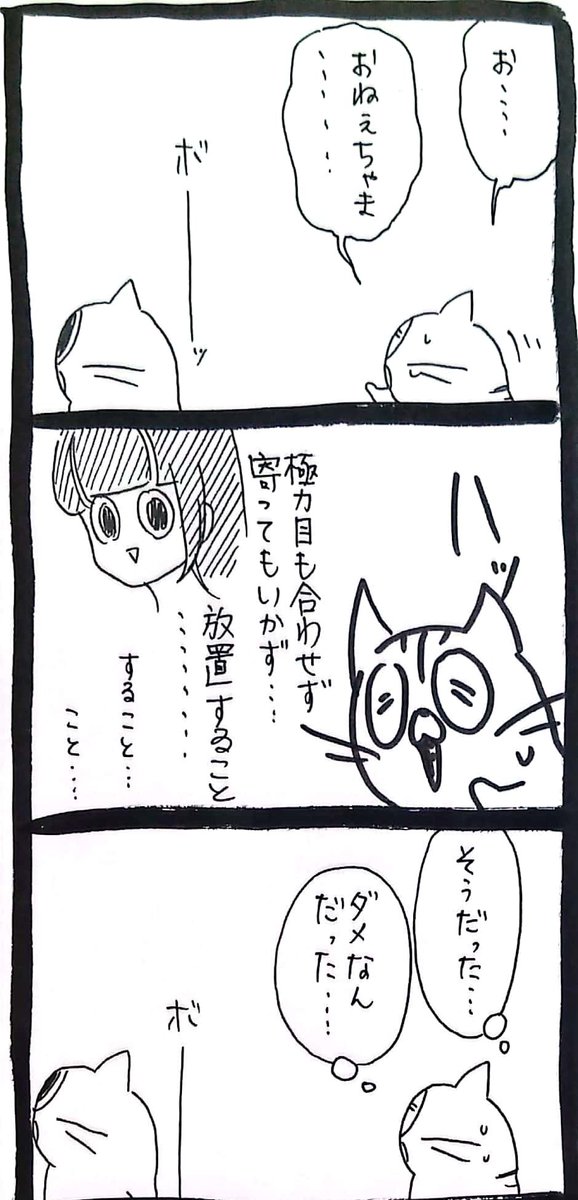 お・・・・
おねぇちゃま
・・・・・・
ボーーッ
ハッ
極力目も合わせず
寄ってもいかず・・・
放置すること
・・・・・・・・
すること・・・
こと・・・・
そうだった・・・
ダメなん
だった・・・・
ボー